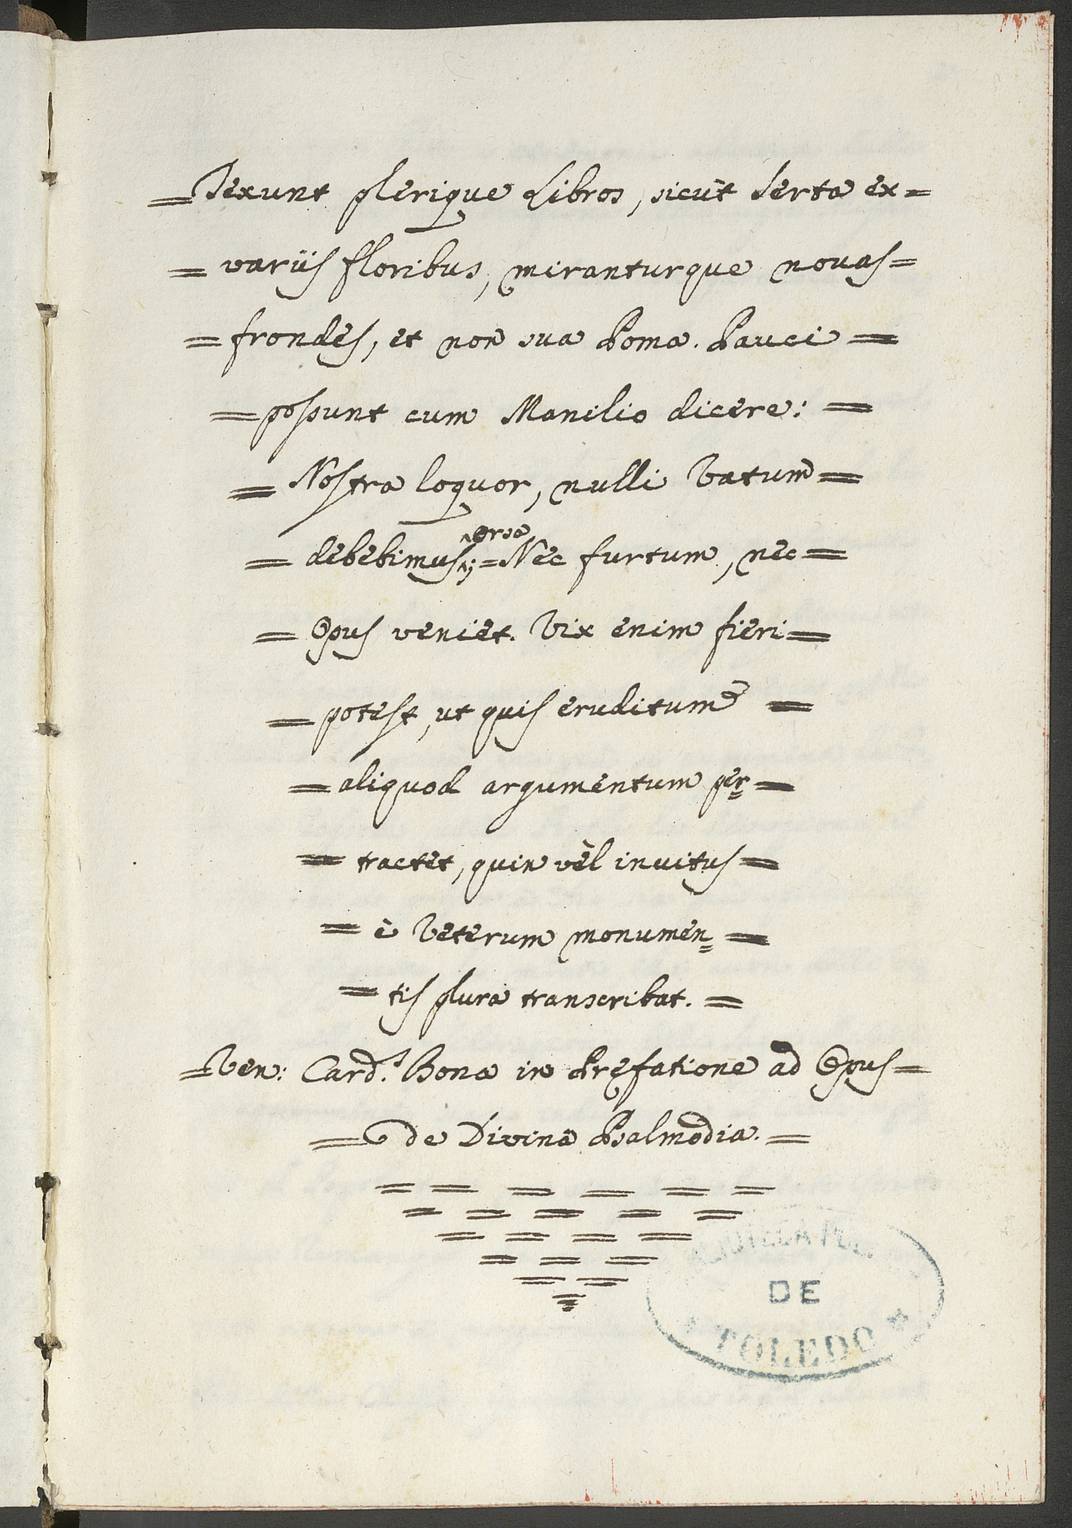 =Texunt plerique Libros, sicut Serta ex=
= variis floribus, miranturque novas=
= frondes, et non sua Poma. Pauci =
= possunt cum Manilio dicere: =
= Nostra loquor, nulli Vatum =
= debebimus ^orsa; = Nec furtum, nec =
= Opus veniet. Vix enim fieri =
= potest, ut quis eruditum =
= aliquod argumentum per= =
= tractet, quin vèl invitus =
= è Veterum monumen= =
= tis plura transcribat. =
=Ven: Card.l Bona in Prefatione ad Opus=
= de Divina Psalmodia. =
DE
TOLEDO